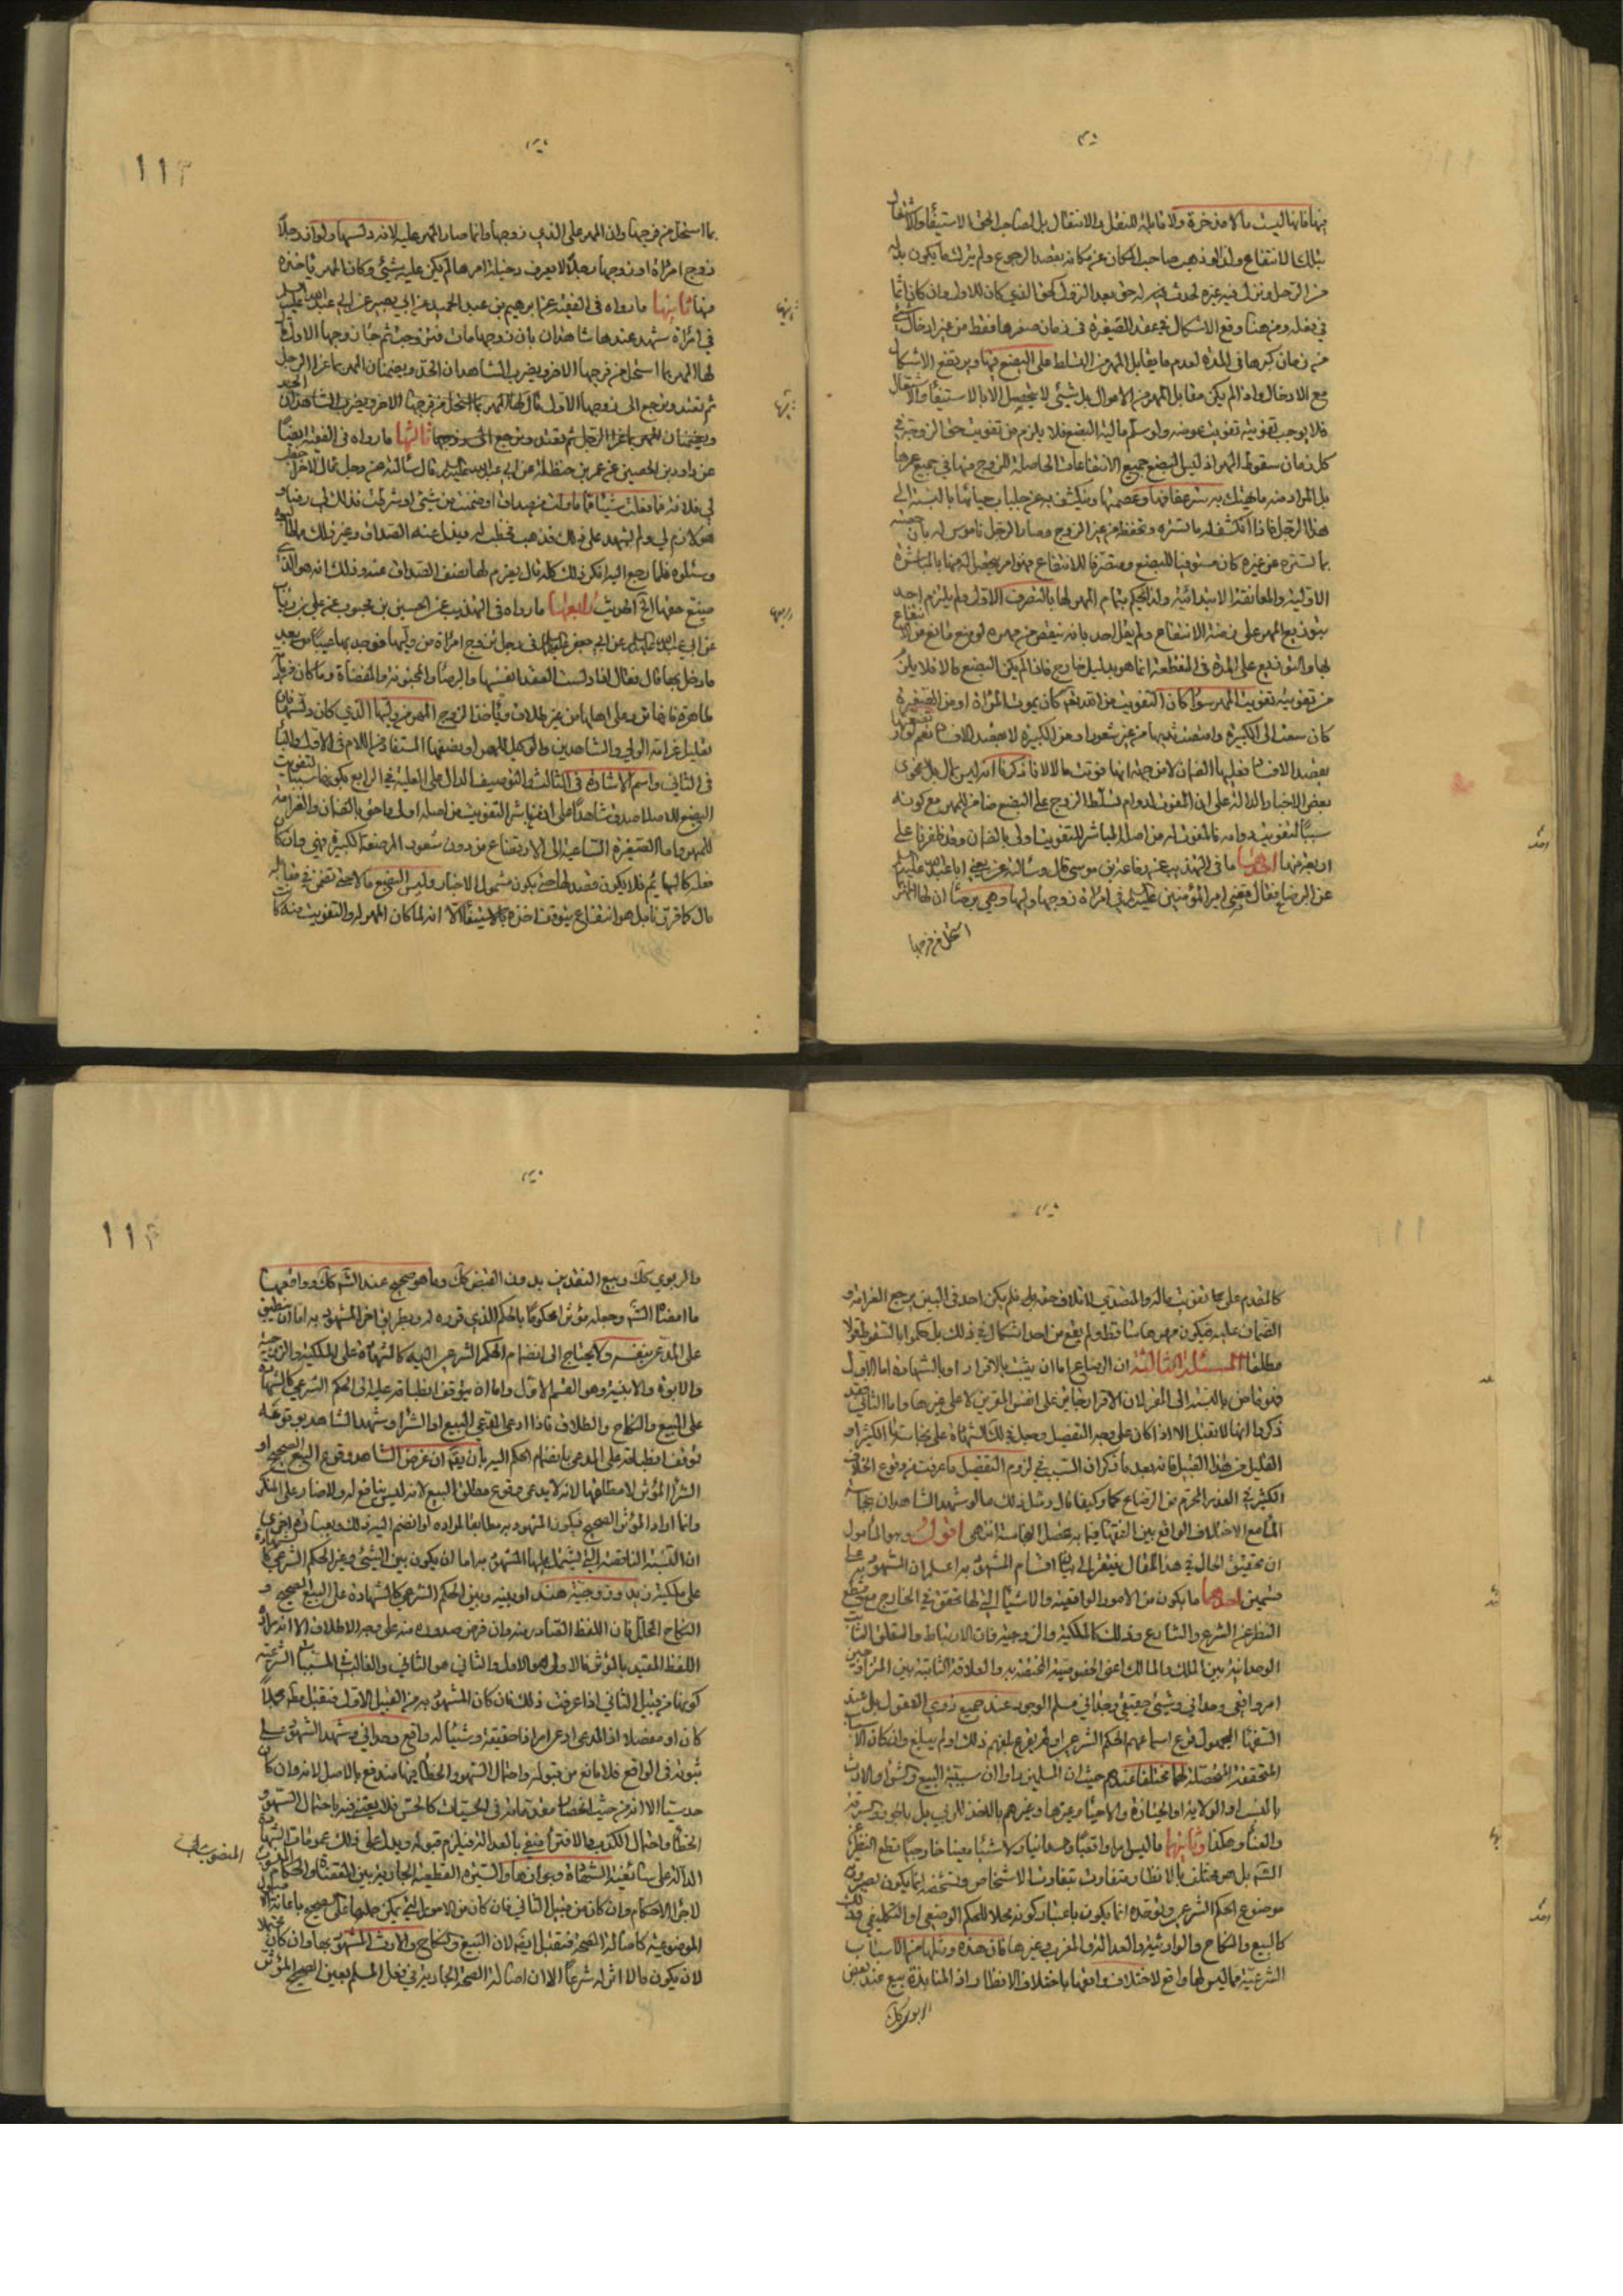 منها فانها ليست مالا مذخرة ولا قابلة للنقل والانتقال بل لصاحب الحق الاستيفاء والانتفاع
بتلك الانتفاع ولذا لو ذهب صاحب المكان عن مكانه بقصد الرجوع ولم يترك ما يكون بدله
من الرحل ونزل فيه غيره لحدث فيه له حق بعد الزوال كحق الذي كان للاول وان كان اثما
في فعله ومن هنا وقع الاشكال في عقد الصغيرة في زمان صغرها فقط من غير ادخال شيء
من زمان كبرها في المدة لعدم ما يقابل المهر من التسلط على البضع فيها ويرتفع الاشكال
مع الادخال واذا لم يكن مقابل المهر من الاموال بل شيئ لا يتحصل الا بالاستيفاء والاشتغال
فلا يوجب تفويته تفويت عوضه ولو سلم مالية البضع فلا يلزم من تفويت حق الزوجية في
كل زمان سقوط المهر اذ ليس البضع جميع الانتفاعات الحاصلة للزوج منها في جميع عمرها
بل المراد منه ما يهتك به ستر عفافها وعصمتها وينكشف به عن جلباب حيائها بالنسبة الى
هذا الرجل فاذا انكشف له ما تستره وتحفظه من غير الزوج وصار الرجل ناموس له بان
بما تستره عن غيره كان مستوفيا للبضع ومتصرفا للانتفاع فهو امر يحصل له منها بالمباشرة
الاولية والمعانقة الابتدائية ولذا يحكم بتمام المهر لها بالتصرف الاول ولم يلتزم احد
بتوزيع المهر على ازمنة الانتفاع ولم يقل احد بانه ينقص من مهره لو منع مانع من الانتفاع
بها والتوزيع على المدة في المنقطعة انما هو بدليل خارج فاذا لم يكن البضع مالا فلا يلزم
من تفويته تفويت المهر سواء كان التفويت من الله تعالى كان بموت المراة او من الصغيرة
كان سعت الى الكبيرة وامتصت ثديها من غير شعور او من الكبيرة لا بقصد الافساد نعم لو ارضعتها
بقصد الافساد فعليها الضمان لا من جهة انها فوتت مالا لانا ذكرنا انه ليس بمال بل بفحوى
بعض الاخبار الدالة على ان المفوت لدوام تسلط الزوج على البضع ضامن للمهر مع كونه
سببا لتفويت دوامه فالمفوت له من اصله المباشر للتفويت اولى بالضمان وقد ظفرنا على
اربعة منها احدها ما في التهذيب عنه رفاعة بن موسى قال وسألته عن يعني ابا عبد الله عليه السلم
عن البرصاء فقال قضى امير المؤمنين عليه السلم في امراة زوجها وليها وهي برصاء ان لها المهر
استحل من فرجها
بما استحل من فرجها وان المهر على الذي زوجها وانما صار المهر عليه لانه دلسها ولو ان رجلا
تزوج امراة او زوجها رجلا لا يعرف دخيلة امرها لم يكن عليه شيئ وكان المهر ياخذه
منها ثانيها ما رواه في الفقيه عن ابرهيم بن عبد الحميد عن ابي بصير عن ابي عبد الله عليه السلم
في امراة شهد عندها شاهدان بان زوجها مات فتزوجت ثم جاء زوجها الاول قال
لها المهر بما استحل من فرجها الاخر ويضرب الشاهدان الحد ويضمنان المهر بما غرا الرجل
ثم تعتد وترجع الى زوجها الاول قال لها المهر بما استحل من فرجها الاخر ويضرب الشاهدان الحد
ويضمنان المهر بما غرا الرجل ثم تعتد وترجع الى زوجها ثالثها ما رواه في الفقيه ايضا
عن داود بن الحصين عن عمر بن حنظلة عن ابي عبد الله عليه السلم قال سألته عن رجل قال لاخر اخطب
لي فلانة فما فعلت شيئا مما قاولت من صداق او ضمنت من شيئ او شرطت فذلك لي رضا و
هو لازم لي ولم يشهد على ذلك فذهب فخطب له وبذل عنه الصداق وغير ذلك مما طالبوه
وسئلوه فلما رجع اليه انكر ذلك كله قال يغرم لها نصف الصداق عنه وذلك انه هو الذي
ضيع حقها الى الحديث رابعها ما رواه في التهذيب عن الحسين بن محبوب عن علي بن رئاب
عن ابي عبيدة عن ابي جعفر عليه السلم في رجل تزوج امراة من وليها فوجد بها عيبا من بعد
ما دخل بها قال فقال اذا دلست العفلاء نفسها والبرصاء والمجنونة والمفضاة وما كان بها
ظاهرة فانها ترد على اهلها من غير طلاق وياخذ الزوج المهر من وليها الذي كان دلسها فان
تعليل غرامة الولي والشاهدين والوكيل للمهر او نصفها المستفاد من اللام في الاول والباء
في الثاني واسم الاشارة في الثالث والتوصيف الدال على العلية في الرابع بكونها سببا لتفويت
البضع للاصل اصدق شاهد على ان مباشر التفويت من اصله اولى واحق بالضمان والغرامة
للمهر واما الصغيرة الساعية الى الارتضاع من دون شعور المرضعة الكبيرة فهي وان كا
فعلها كالبهائم فلا يكون قصد لها حتى يكون مشمول الاخبار وليس البضع مالا حتى تضمن في مقابله
مال كما قررنا بل هو انتفاع يتوقت اخذه بالاستيفاء الا انه لما كان المهر له والتفويت منه كا
كالمقدم على ما تفويت ماله والمتصدي لاتلاف حقه فلم يكن احد في البين يرجع الغرامة و
الضمان عليه فيكون مهرها ساقطا ولم يقع من احد اشكال في ذلك بل حكموا بالسقوط قولا
مطلقا المسئلة الثالثة ان الرضاع اما ان يثبت بالاقرار او بالشهادة اما الاول
فهو ماض بالنسبة الى المقر لان الاقرار جايز على انفس المقرين لا على غيرها واما الثاني فقد
ذكروا انها لا تقبل الا اذا كان على وجه التفصيل وجعل في ذلك الشهادة على نجاسة الماء الكثير او
القليل من هذا القبيل فانه بعد ما ذكر ان السبب في لزوم التفصيل ما عرفت من وقوع الخلاف
الكثير في القدر المحرم من الرضاع كما وكيفا قال ومثل ذلك ما لو شهد الشاهدان بنجاسة
الماء مع الاختلاف الواقع بين الفقهاء فيما به يحصل النجاسة انتهى اقول وهو المأمول
ان تحقيق الحال في هذا المقال يفتقر الى بيان اقسام المشهود به اعلم ان المشهود به على
قسمين احدهما ما يكون من الامور الواقعية والاشياء التي لها تحقق في الخارج مع قطع
النظر عن الشرع والشارع وذلك كالملكية والزوجية فان الارتباط والتعلق الثابت
الوجدانية بين الملك والمالك اعني الخصوصية المختصة به والعلاقة الثابتة بين المتزاوجين
امر واقعي وجداني وشيئ حقيقي وجداني مسلم الوجود عند جميع ذوي العقول بل عند
السفهاء المجهول قرع اسماعهم الحكم الشرعي او لم يقرع بلغهم ذلك او لم يبلغ وان كان الاسباب
المحققة المحصلة لها مختلفا عندهم حيث ان المسلمين راوا ان سببية البيع والشراء والارث
بالنسب او الولاية او الحيازة والاحياء وغيرها وغيرهم بالاخذ للربى بل باخذ والسرقة
والعناء وهكذا وثانيهما ما ليس امرا واقعيا وجدانيا ولا شيئا معينا خارجيا مع قطع النظر عن
الشرع بل هو مختلف بالانظار متفاوت بتفاوت الاشخاص وتشخصه انما يكون بصيرورته
موضوع الحكم الشرعي وتوحده انما يكون باعتبار كونه محلا للحكم الوضعي او التكليفي وذلك
كالبيع والنكاح والوارثية والعدالة والمغرب وغيرها فان هذه ومثلها من الاسباب
الشرعية مما ليس لها واقع لاختلاف واقعها باختلاف الانظار اذ المنابذة بيع عند بعض
الربوي كك
والربوي كك وبيع النقدين بدون القبض كك وما هو صحيح عند الشرع كك وواقعها
ما امضاه الشرع وجعله مؤثرا محكوما بالحكم الذي قرره له وبطريق اخر المشهود به اما ان ينطبق
على المدعى بنفسه ولا يحتاج الى انضمام الحكم الشرعي اليه كالشهادة على الملكية والزوجية
والابوة والابنية وهو القسم الاول واما ان يتوقف انطباقه عليه الى الحكم الشرعي كالشهادة
على البيع والنكاح والطلاق فاذا ادعى المدعي البيع او الشراء وشهد الشاهد بوقوعه
توقف انطباقه على المدعى بانضمام الحكم اليه بان يقال ان غرض الشاهد وقوع البيع الصحيح او
الشراء المؤثر لا مطلقها لانه لا يدعى وقوع مطلق البيع لانه ليس بنافع له والا ضار على المنكر
وانما اراد المؤثر الصحيح فيكون المشهود به مطابقا لمراده لو انضم اليه ذلك وبعبارة اخرى
ان النسبة الناقصة التي يشتمل عليها المشهود به اما ان يكون بين الشيئ وغير الحكم الشرعي كالشهادة
على ملكية زيد وزوجية هند او بينه وبين الحكم الشرعي كالشهادة على البيع الصحيح و
النكاح الحلال فان اللفظ الصادر منه وان فرض صدوره منه على وجه الاطلاق الا انه يراد
اللفظ المقيد بالمؤثر فالاولى هو الاول والثاني هو الثاني والغالب في المسببات الشرعية
كونها من قبيل الثاني اذا عرفت ذلك فان كان المشهود به من القبيل الاول فتقبل مطلقا مجملا
كان او مفصلا اذ المدعى ادعى امرا ذا حقيقة وشيئا له واقع وجداني وشهد الشهود على
ثبوته في الواقع فلا مانع من قبوله واحتمال السهو والخطأ فيها مندفع بالاصل لانه وان كان
حدسيا الا انه من حيث انحصار مقدماته في الحسيات كالحس فلا يعتنى فيه باحتمال السهو و
الخطأ واحتمال الكذب والافتراء منفي بالعدالة فيلزم قبوله ويدل على ذلك عمومات الشهادة
الدالة على سائغية الشهادة وجوازها والسيرة القطعية الجارية بين القضاة والحكام
لاجراء الاحكام وان كان من قبيل الثاني فان كان من الامور التي يمكن حملها على الصحيح باعانة الاصول
الموضوعية كاصالة الصحة فتقبل ايضا لان البيع والنكاح والارث المشهود بها وان كان محتملا
لان يكون مالا اثر له شرعا الا ان اصالة الصحة الجارية في فعل المسلم يعين الصحيح المؤثر
المنصوبين